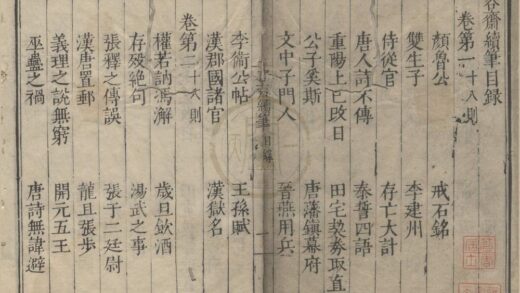 容齋續筆目錄
卷第一十八則
顏魯公 戒石銘
雙生子 李建州
侍從官 存亡大計
唐人詩不傳 泰誓四語
重陽上巳改日 田宅契券取直
公子奚斯 唐藩鎮幕府
文中子門人 晉燕用兵
續筆目錄 一
李衛公帖 王孫賦
漢郡國諸官 漢獄名
卷第二十八則
權若訥馮澥 歲旦飲酒
存歿絕句 湯武之事
張釋之傳誤 張于二廷尉
漢唐置郵 龍且張步
義理之說無窮 開元五王
巫蠱之禍 唐詩無諱避